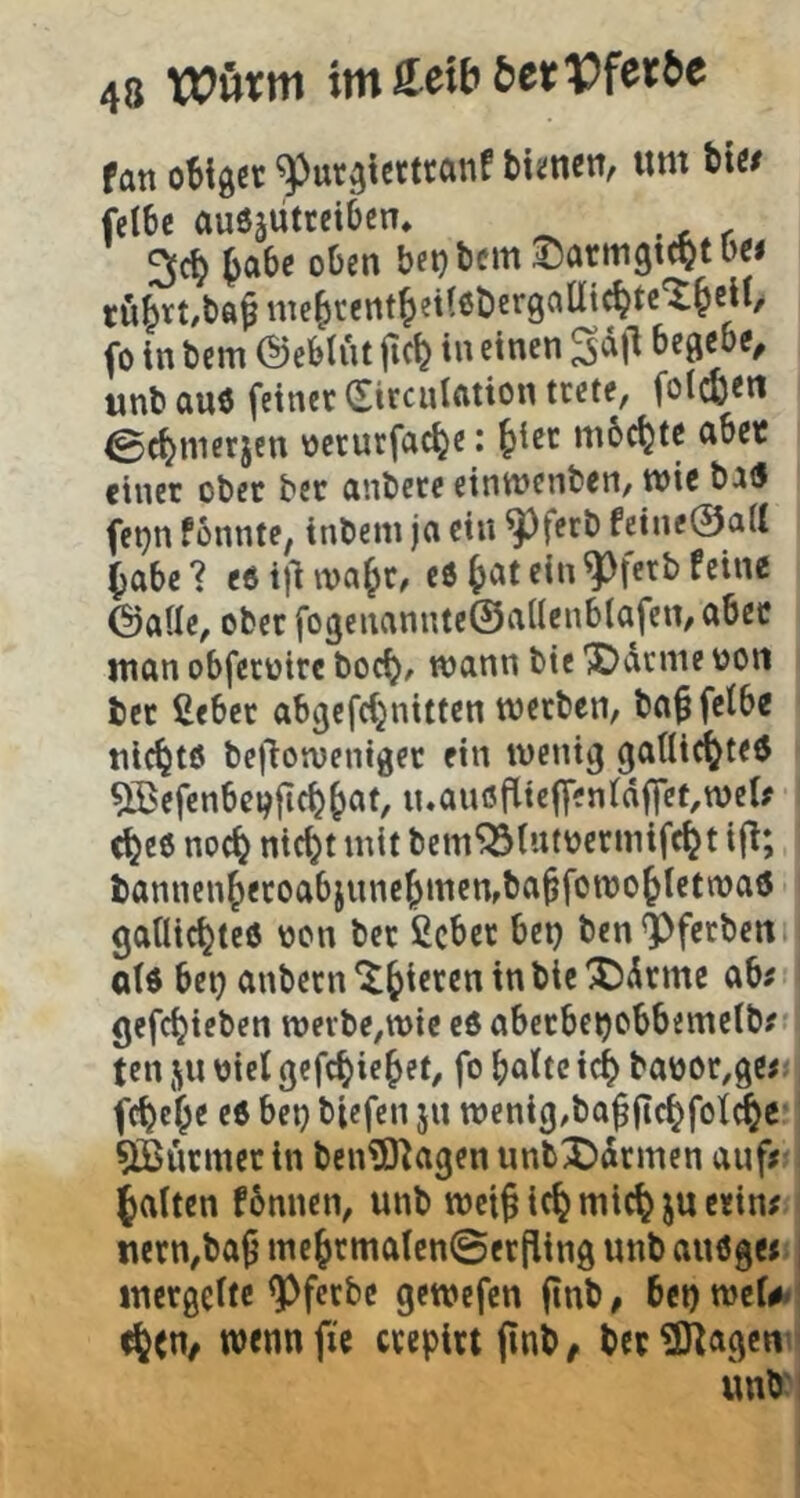 48 Würm im Leib der Pferde
kan obiger Purgiertrank dienen, um die-
selbe auszutreiben.
Ich habe oben bey dem Darmgicht be-
rührt, daß mehrentheils der gallichte Theil,
so in dem Geblüt sich in einen Jäst begebe,
und aus seiner Circulation trete, solchen
Schmerzen verursache: hier möchte aber
einer oder der andere einwenden, wie das
seyn könnte, indem ja ein Pferd keine Gall
habe? es ist wahr, es hat ein Pferd keine
Galle, oder sogenannte Gallenblasen, aber
man observire doch, wann die Därme von
der Leber abgeschnitten werden, daß selbe
nichts destoweniger ein wenig gallichtes
Wesen bey sich hat, u. ausfliessen lässet, wel-
ches noch nicht mit dem Blut vermischt ist;
dannenhero abzunehmen, daß sowohl etwas
gallichtes von der Leber bey den Pferden
als bey andern Thieren in die Därme ab-
geschieden werde, wie es aber bey obbemeld-
ten zu viel geschiehet, so halte ich davor, ge-
schehe es bey diesen zu wenig, daß sich solche
Würmer in den Magen und Därmen auf-
halten können, und weiß ich mich zu erin-
nern, daß mehrmalen Serfling und ausge-
mergelte Pferde gewesen sind, bey wel-
chen, wenn sie crepirt sind, der Magen
und